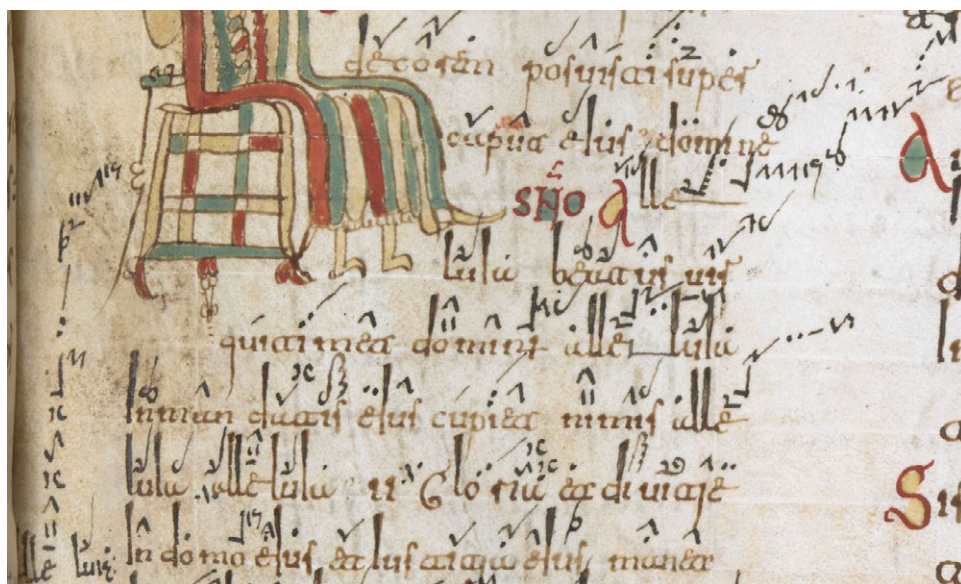 decorem posuisti super
caput eius domine
SNO Alle
luia beatus uir
qui timet alleluia
In mandatis eius cupiet nimis alle
luia alleluia II Gloria et diuitie
In domo eius et iustitia eius manet